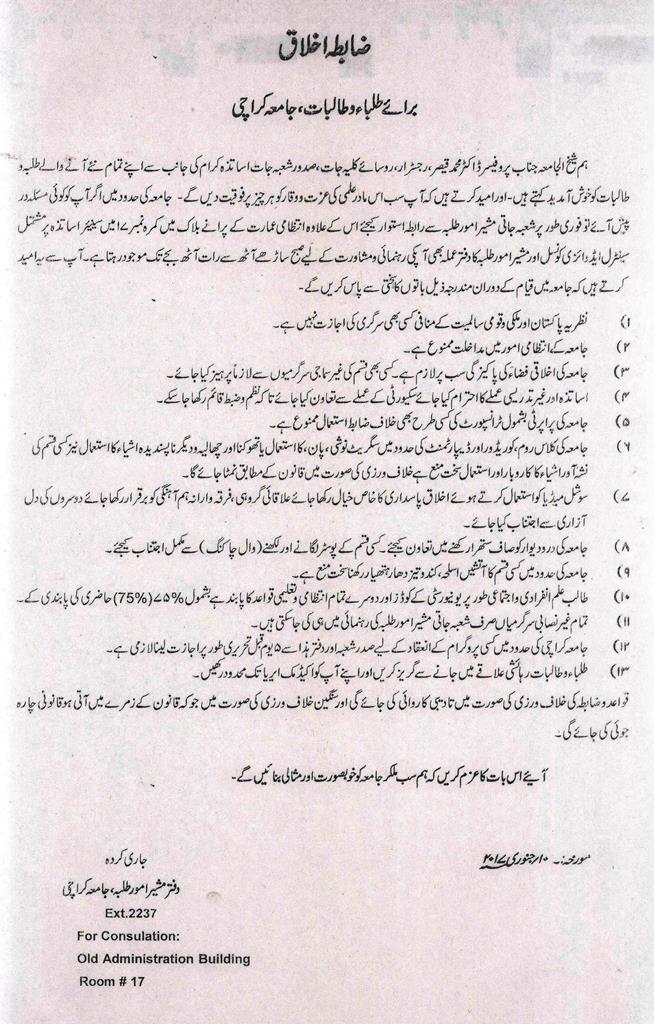 ضابطہ اخلاق
برائے طلباء و طالبات، جامعہ کراچی
ہم شیخ الجامعہ جناب پروفیسر ڈاکٹر محمد قیصر، رجسٹرار، روسائے کلیہ جات، صدور شعبہ جات اساتذہ کرام کی جانب سے اپنے تمام نئے آنے والے طلبہ و
طالبات کو خوش آمدید کہتے ہیں۔ اور امید کرتے ہیں کہ آپ سب اس مادر علمی کی عزت و وقار کو ہر چیز پر فوقیت دیں گے۔ جامعہ کی حدود میں اگر آپ کو کوئی مسئلہ در
پیش آئے تو فوری طور پر شعبہ جاتی مشیر امور طلبہ سے رابطہ استوار کیجئے اس کے علاوہ انتظامی عمارت کے پرانے بلاک میں کمرہ نمبر ۱۷ میں سینئر اساتذہ پر مشتمل
سینٹرل ایڈوائزری کونسل اور مشیر امور طلبہ کا دفتر عملہ بھی آپکی رہنمائی و مشاورت کے لیے صبح ساڑھے آٹھ سے رات آٹھ بجے تک موجود رہتا ہے۔ آپ سے یہ امید
کرتے ہیں کہ جامعہ میں قیام کے دوران مندرجہ ذیل باتوں کا سختی سے پاس کریں گے۔
۱) نظریہ پاکستان اور ملکی و قومی سالمیت کے منافی کسی بھی سرگرمی کی اجازت نہیں ہے۔
۲) جامعہ کے انتظامی امور میں مداخلت ممنوع ہے۔
۳) جامعہ کی اخلاقی فضاء کی پاکیزگی سب پر لازم ہے۔ کسی بھی قسم کی غیر سماجی سرگرمیوں سے لازماً پرہیز کیا جائے۔
۴) اساتذہ اور غیر تدریسی عملے کا احترام کیا جائے سیکیورٹی کے عملے سے تعاون کیا جائے تاکہ نظم و ضبط قائم رکھا جا سکے۔
۵) جامعہ کی پراپرٹی بشمول ٹرانسپورٹ کی کسی طرح بھی خلاف ضابطہ استعمال ممنوع ہے۔
۶) جامعہ کی کلاس روم، کوریڈور اور ڈیپارٹمنٹ کی حدود میں سگریٹ نوشی، پان، کا استعمال یا تھوکنا اور چھالیہ و دیگر ناپسندیدہ اشیاء کا استعمال نیز کسی قسم کی
نشہ آور اشیاء کا کاروبار اور استعمال سخت منع ہے خلاف ورزی کی صورت میں قانون کے مطابق نمٹا جائے گا۔
۷) سوشل میڈیا کو استعمال کرتے ہوئے اخلاق پاسداری کا خاص خیال رکھا جائے علاقائی گروہی، فرقہ وارانہ ہم آہنگی کو برقرار رکھا جائے دوسروں کی دل
آزاری سے اجتناب کیا جائے۔
۸) جامعہ کی در و دیوار کو صاف ستھرا رکھنے میں تعاون کیجئے۔ کسی قسم کے پوسٹر لگانے اور لکھنے (وال چاکنگ) سے مکمل اجتناب کیجئے۔
۹) جامعہ کی حدود میں کسی قسم کا آتشیں اسلحہ، کند و تیز دھار ہتھیار رکھنا سخت منع ہے۔
۱۰) طالب علم انفرادی و اجتماعی طور پر یونیورسٹی کے کوڈز اور دوسرے تمام انتظامی و تعلیمی قواعد کا پابند ہے بشمول ۷۵% (75%) حاضری کی پابندی کے۔
۱۱) تمام غیر نصابی سرگرمیاں صرف شعبہ جاتی مشیر امور طلبہ کی رہنمائی میں ہی کی جاسکتی ہیں۔
۱۲) جامعہ کراچی کی حدود میں کسی پروگرام کے انعقاد کے لیے صدر شعبہ اور دفتر ہذا سے ۵ یوم قبل تحریری طور پر اجازت لینا لازمی ہے۔
۱۳) طلباء و طالبات رہائشی علاقے میں جانے سے گریز کریں اور اپنے آپ کو اکیڈمک ایریا تک محدود رکھیں۔
قواعد و ضابطہ کی خلاف ورزی کی صورت میں تادیبی کاروائی کی جائے گی اور سنگین خلاف ورزی کی صورت میں جو کہ قانون کے زمرے میں آتی ہو قانونی چارہ
جوئی کی جائے گی۔
آیئے اس بات کا عزم کریں کہ ہم سب ملکر جامعہ کو خوبصورت اور مثالی بنائیں گے۔
مورخہ۔ ۱۰؍جنوری ۲۰۱۷ء
جاری کردہ
دفتر مشیر امور طلبہ، جامعہ کراچی
Ext.2237
For Consulation:
Old Administration Building
Room # 17